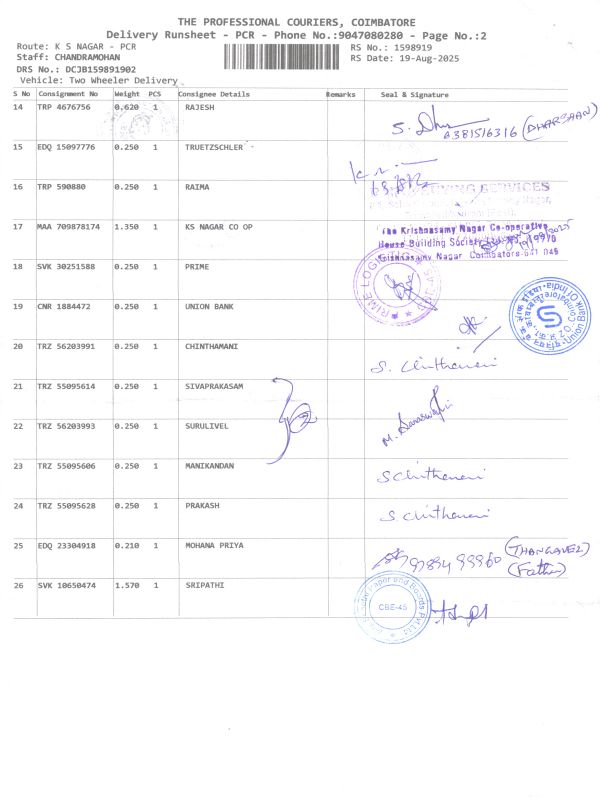 THE PROFESSIONAL COURIERS, COIMBATORE
Delivery Runsheet - PCR - Phone No.:9047080280 - Page No.:2
Route: K S NAGAR - PCR RS No.: 1598919
Staff: CHANDRAMOHAN RS Date: 19-Aug-2025
DRS No.: DCJB159891902
Vehicle: Two Wheeler Delivery
S No Consignment No Weight PCS Consignee Details Remarks Seal & Signature
14 TRP 4676756 0.620 RAJESH
S. 6381516316 (DHARSHAN)
15 EDQ 15097776 0.250 1 TRUETZSCHLER
16 TRP 590880 0.250 1 RAIMA
SERVICES
17 MAA 709878174 1.350 1 KS NAGAR CO OP
The Krishnasamy Nagar Co-operative
House Building Society
Krishnasamy Nagar Coimbatore-641 045
18 SVK 30251588 0.250 1 PRIME
PRIME LOGISTICS
19 CNR 1884472 0.250 1 UNION BANK
Union Bank Of India
20 TRZ 56203991 0.250 1 CHINTHAMANI
S. Chinthamani
21 TRZ 55095614 0.250 1 SIVAPRAKASAM
22 TRZ 56203993 0.250 1 SURULIVEL
M. Saraswathi
23 TRZ 55095606 0.250 1 MANIKANDAN
S Chinthamani
24 TRZ 55095628 0.250 1 PRAKASH
S Chinthamani
25 EDQ 23304918 0.210 1 MOHANA PRIYA
97894 99960 (THANGAVEL)
(Father)
26 SVK 10650474 1.570 1 SRIPATHI
Paper and Boards Pvt Ltd
CBE-45